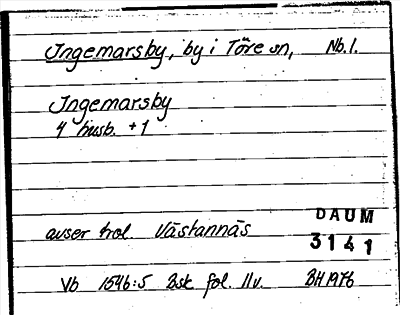 Ingemarsby, by i Töre sn, Nb.l.
Ingemarsby
4 husb. +1
avser trol Västannäs
DAUM
3141
Vb 1546:5 Bsk fol. 11v. BH 1976